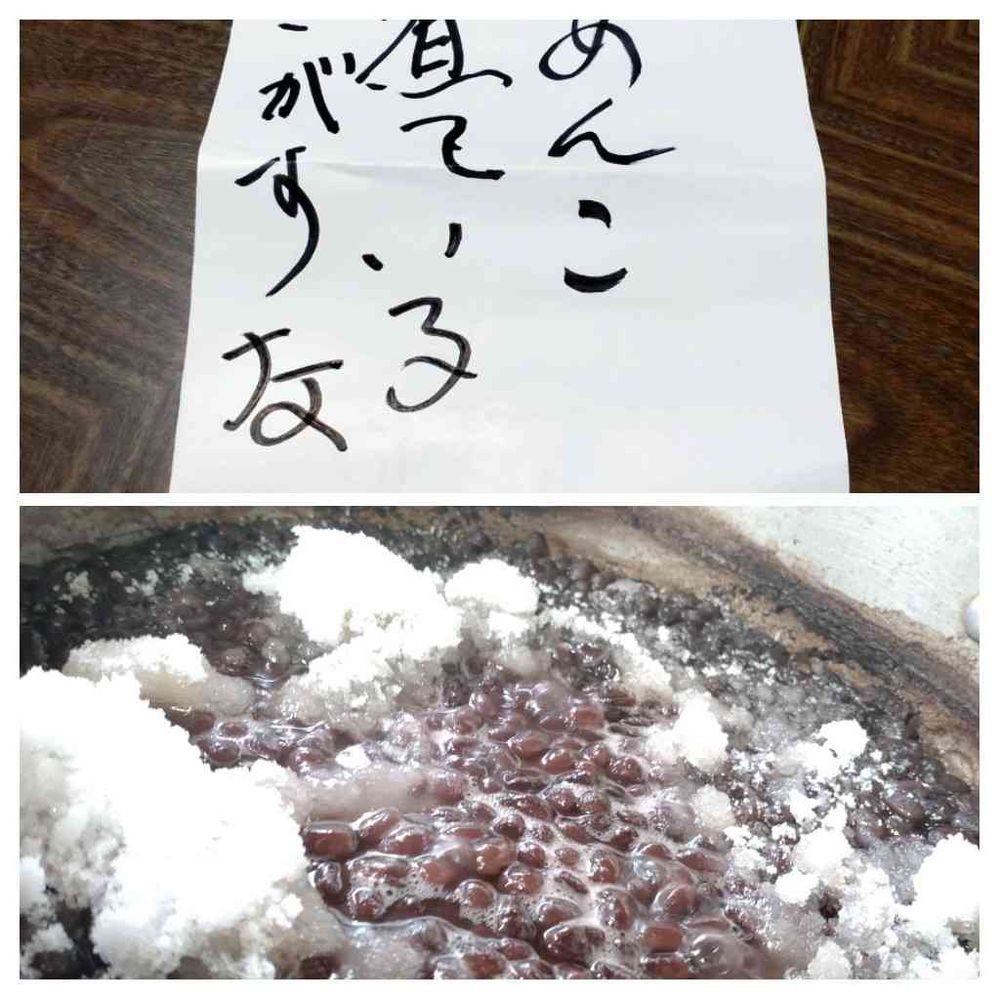 あんこ
煮ている
こがすな